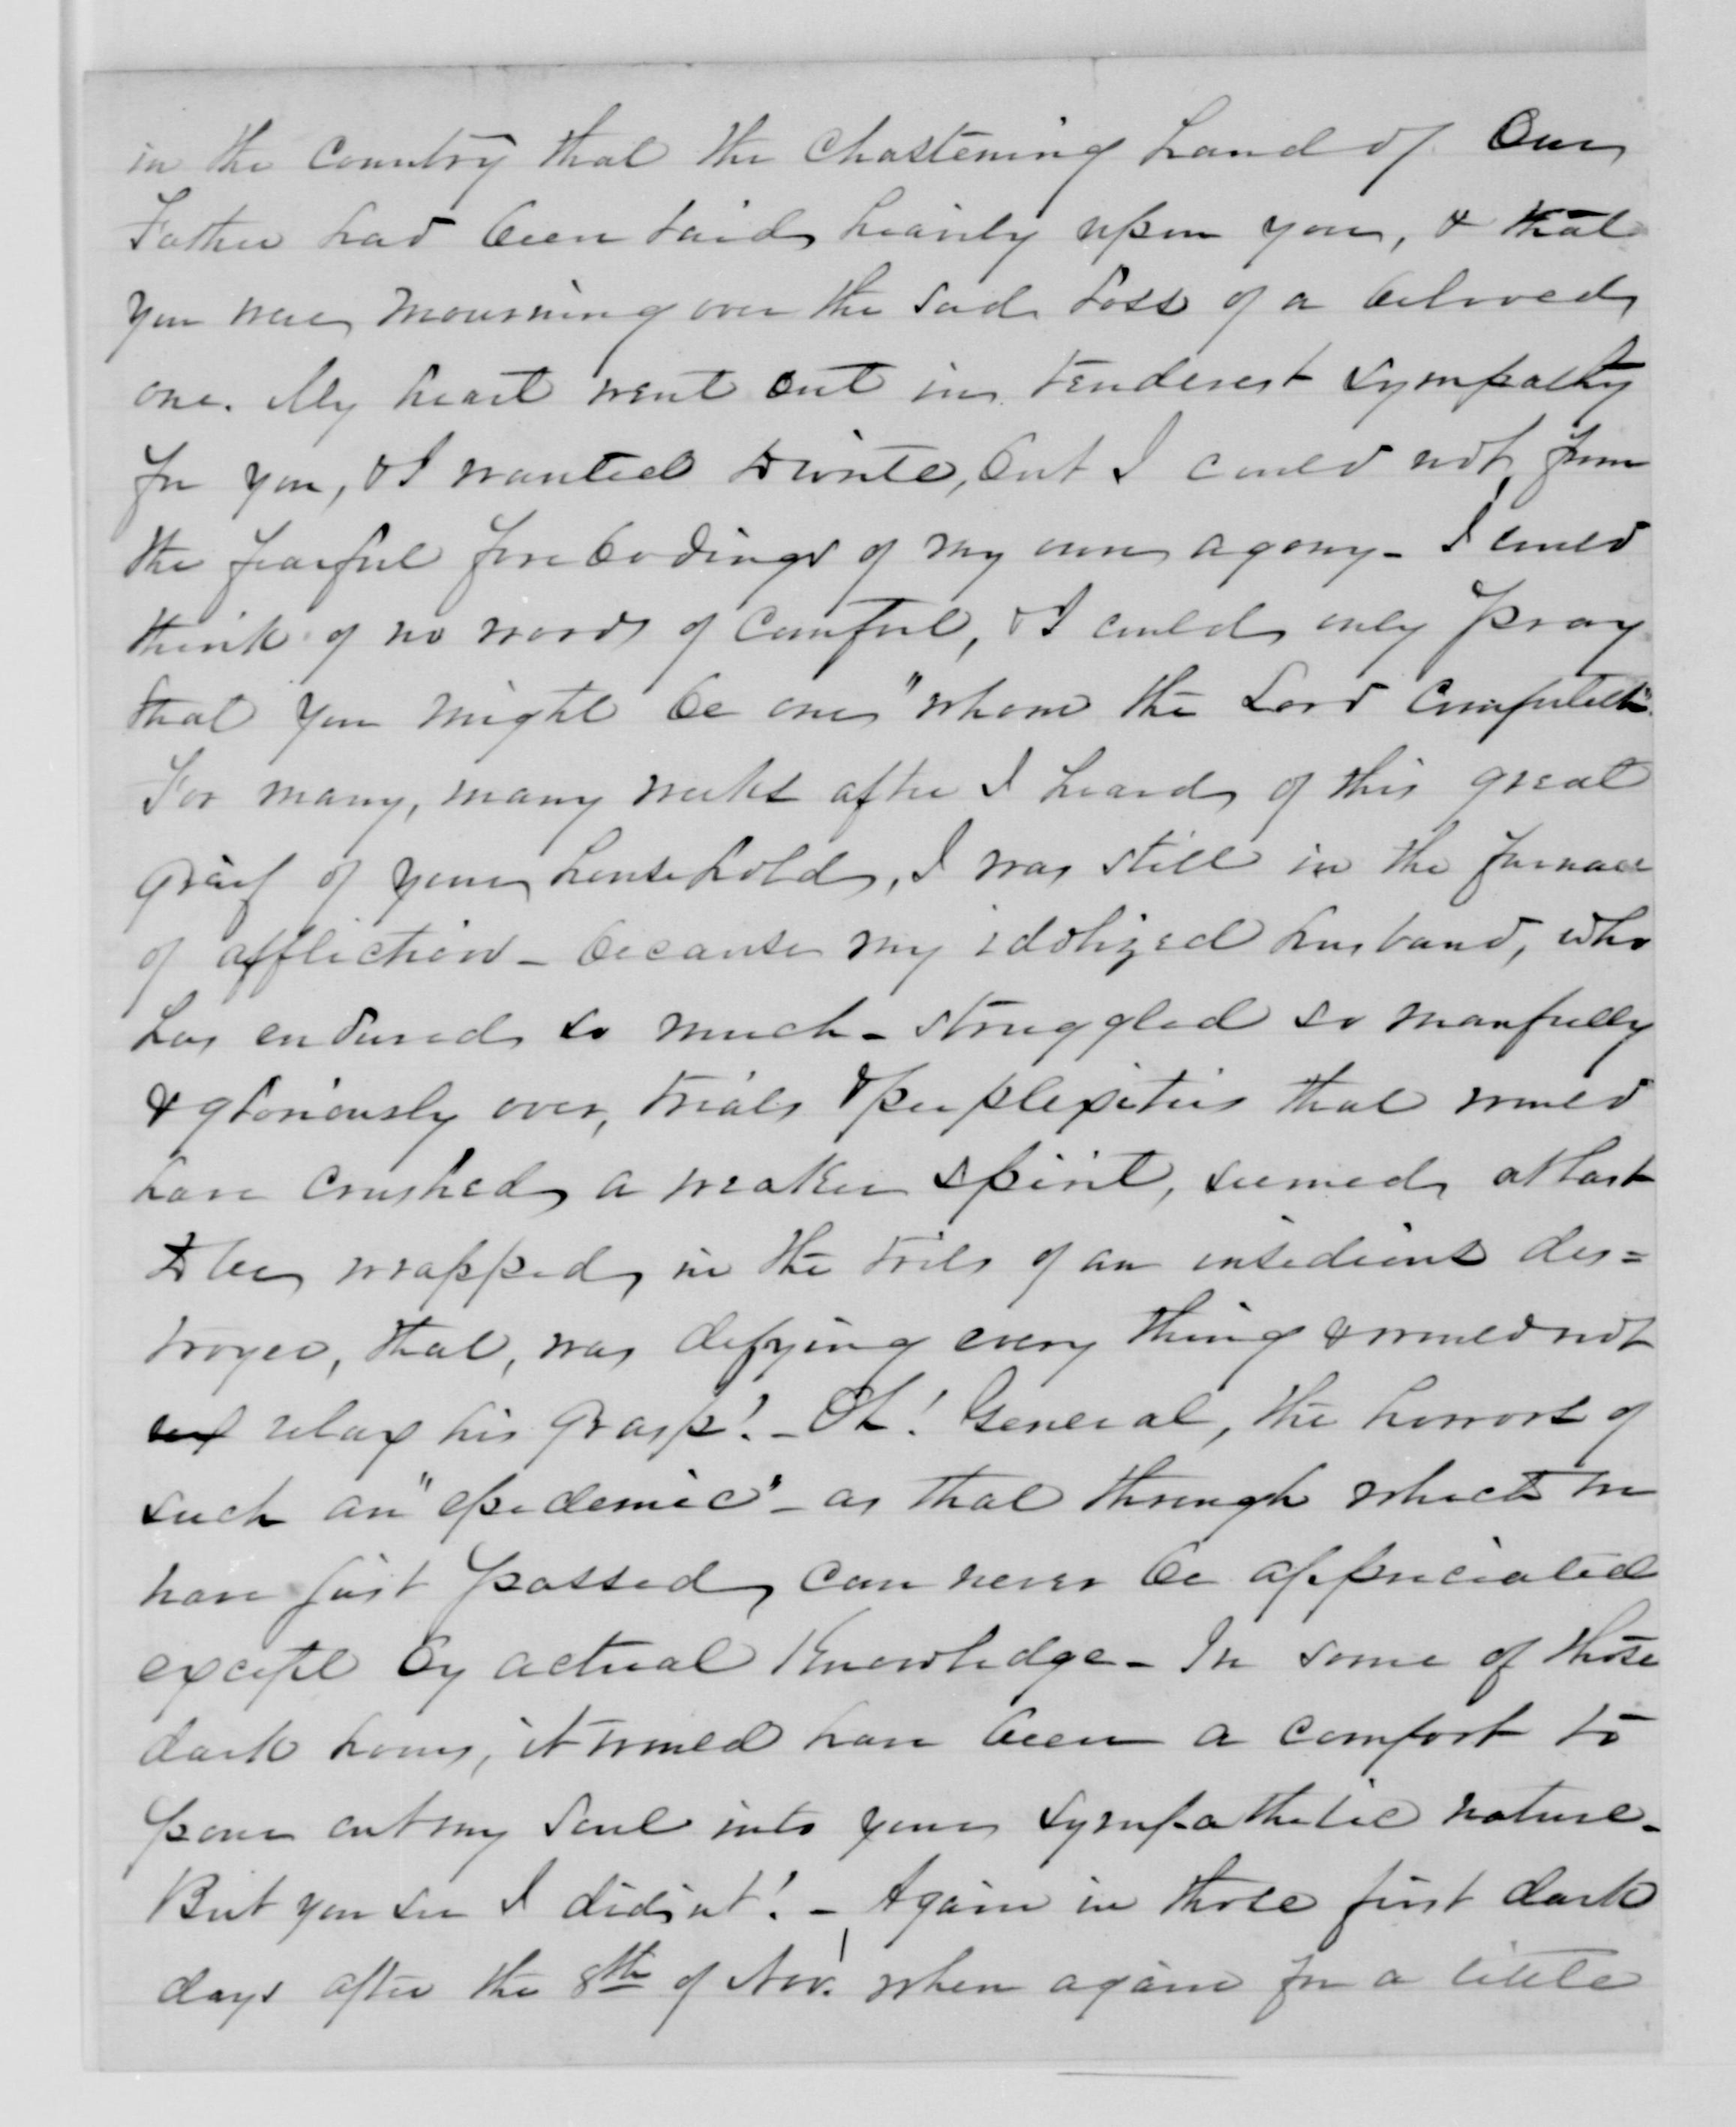 in the country that the chastening hand of Our
Father had been laid heavily upon you, & that
you were mourning over the sad loss of a beloved
one. My heart went out in tenderest sympathy
for you, & I wanted to write, but I could not, from
the fearful forebodings of my own agony - I could
think of no words of comfort, & I could only pray
that you might be one "whom the Lord comforteth".
For many, many weeks after I heard of this great
grief of your household, I was still in the furnace
of affliction - because my idolized husband, who
has endured so much - struggled so manfully
& gloriously over, trials & perplexities that would
have crushed a weaker spirit, seemed at last
to be wrapped, in the toils of an insidious des=
troyer, that, was defying every thing & would not
relax his grasp! - Oh! General, the horrors of
such an "epidemic" - as that through which we
have just passed, can never be appreciated
except by actual knowledge - In some of those
dark hours, it would have been a comfort to
pour out my soul into your sympathetic nature -
But you see I didn't! - Again in those first dark
days after the 8th of Nov. when again for a little